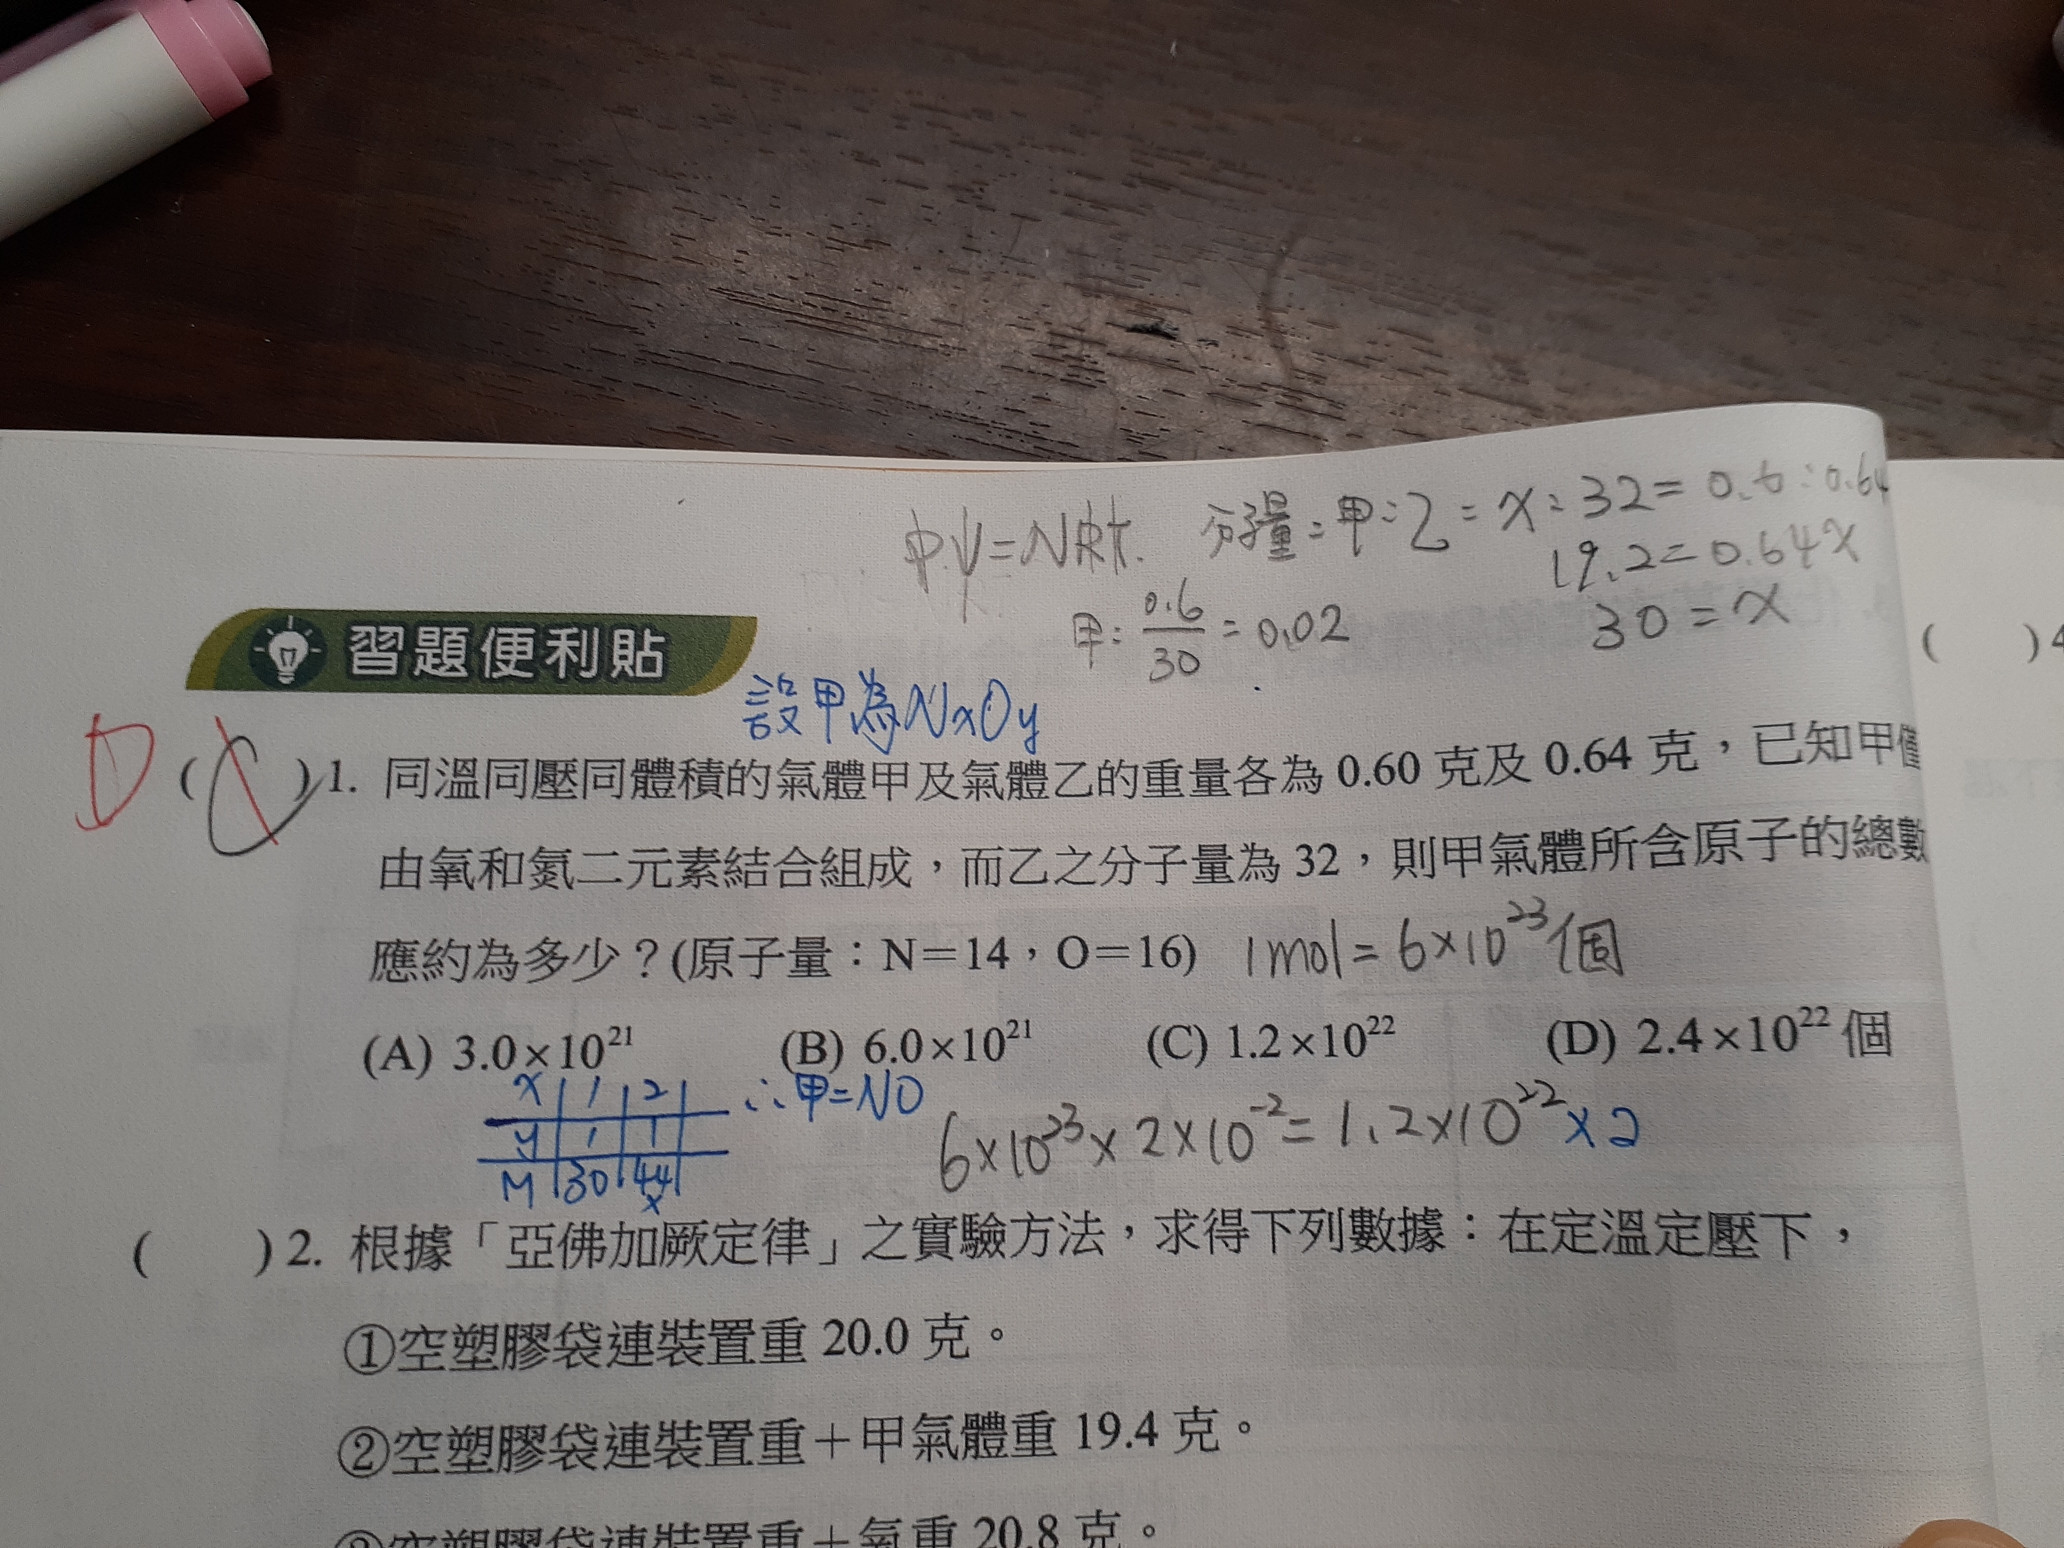 PV=nRT. 分子量=甲:乙=x:32=0.6:0.64
19.2=0.64x
甲:0.6/30=0.02
30=x
習題便利貼
設甲為NxOy
D
( C )1. 同溫同壓同體積的氣體甲及氣體乙的重量各為 0.60 克及 0.64 克，已知甲僅
由氧和氮二元素結合組成，而乙之分子量為 32，則甲氣體所含原子的總數
應約為多少？(原子量：N＝14，O＝16) 1mol=6×10²³個
(A) 3.0×10²¹ (B) 6.0×10²¹ (C) 1.2×10²² (D) 2.4×10²² 個
x 1 2
∴甲=NO
y 1 1
M 30 44
x
6×10²³×2×10⁻²=1.2×10²²×2
( )2. 根據「亞佛加厥定律」之實驗方法，求得下列數據：在定溫定壓下，
①空塑膠袋連裝置重 20.0 克。
②空塑膠袋連裝置重＋甲氣體重 19.4 克。
③空塑膠袋連裝置重＋氧重 20.8 克。
( )4